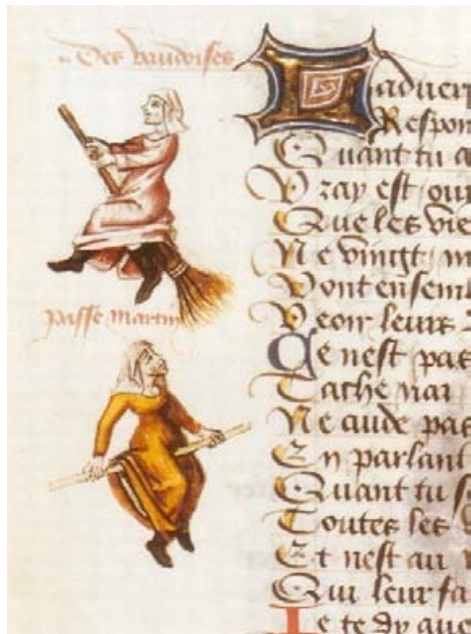 Des vaudoises
Laduer
Respon
Quant tu a
Vray est ouy
Que les vie
Ne vingt m
Vont ensem
passe martin
Veoir leurs
Ce nest pas
Tache nai
Ne cuide pas
En parlant
Quant tu s
Toutes les
Et nest au
Qui leur fa
Je te dy que